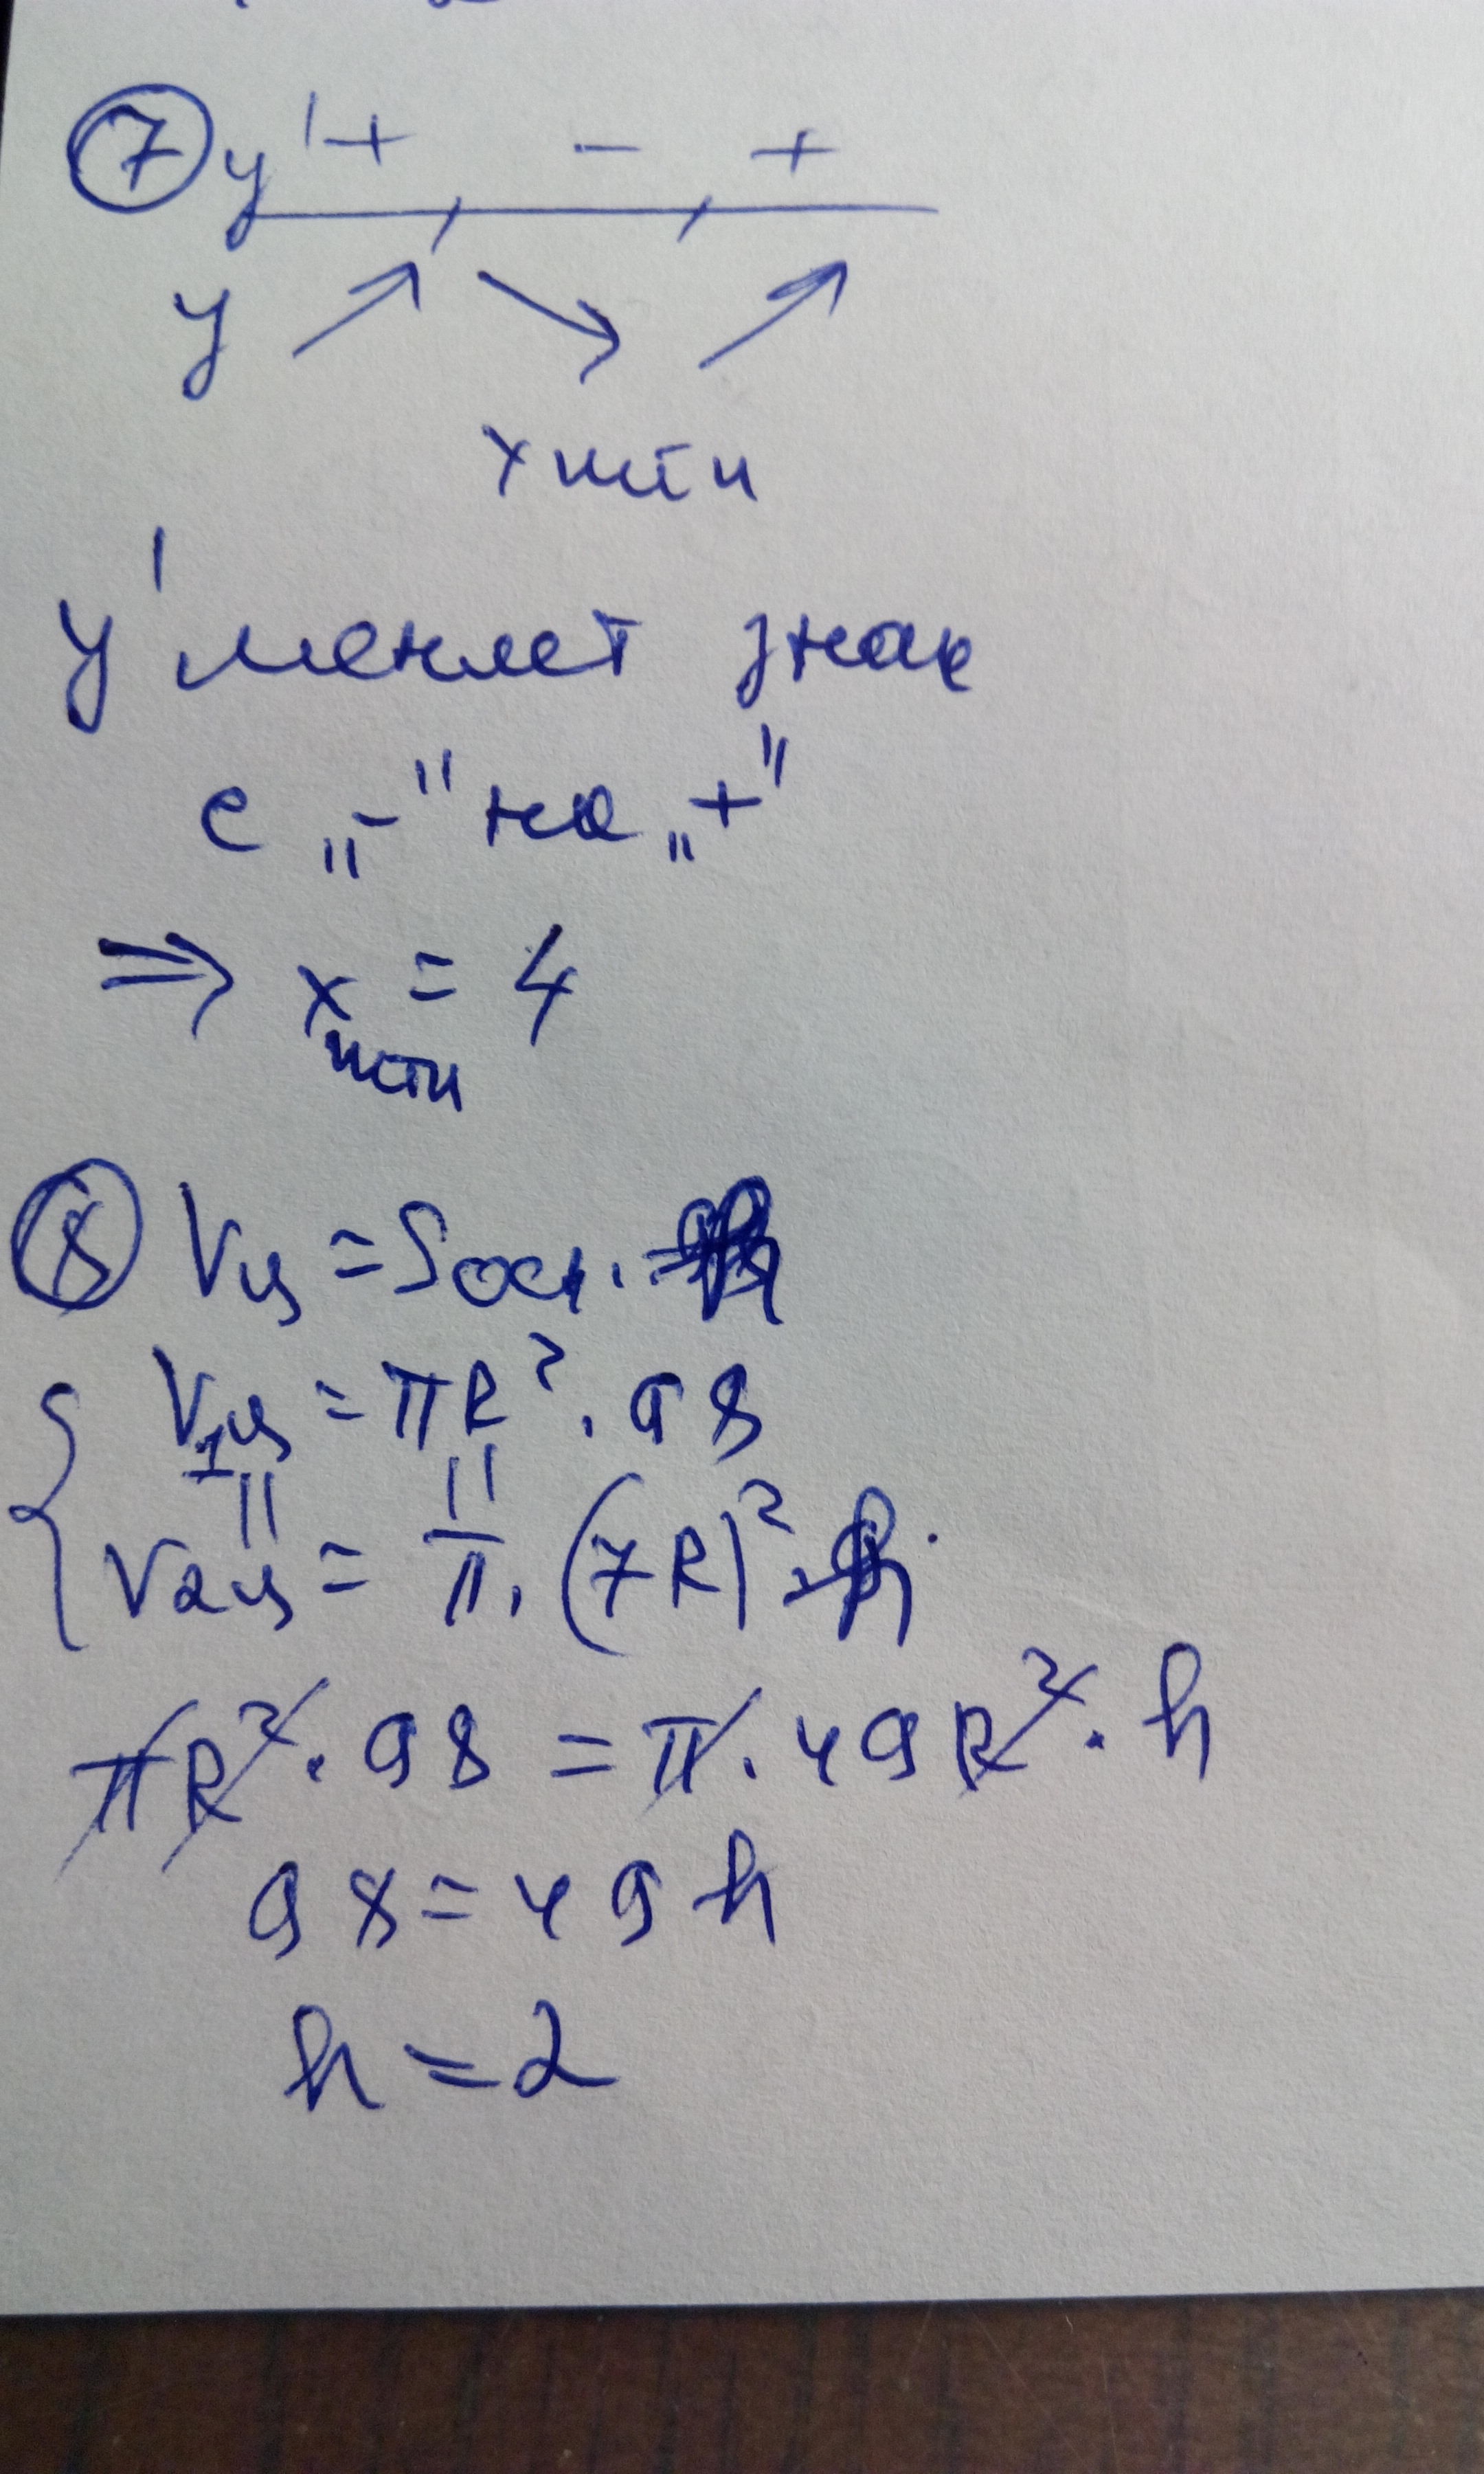 7 y' + - +
y
x min
y' меняет знак
с „-" на „+"
⇒ x = 4
min
8 Vц = Sосн. h
V1ц = πR² · 98
V2ц = π · (7R)² · h
πR² · 98 = π · 49R² · h
98 = 49h
h = 2